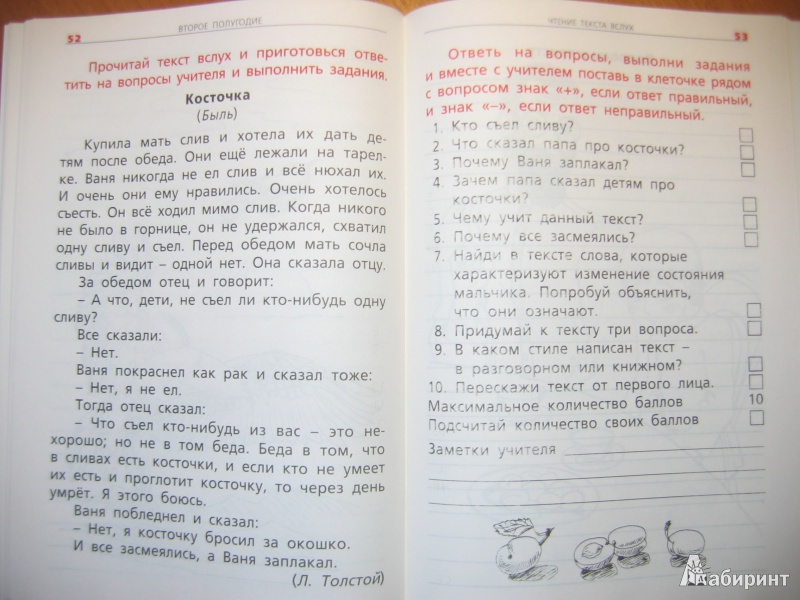 52
ВТОРОЕ ПОЛУГОДИЕ
Прочитай текст вслух и приготовься отве-
тить на вопросы учителя и выполнить задания.
Косточка
(Быль)
Купила мать слив и хотела их дать де-
тям после обеда. Они ещё лежали на тарел-
ке. Ваня никогда не ел слив и всё нюхал их.
И очень они ему нравились. Очень хотелось
съесть. Он всё ходил мимо слив. Когда никого
не было в горнице, он не удержался, схватил
одну сливу и съел. Перед обедом мать сочла
сливы и видит – одной нет. Она сказала отцу.
За обедом отец и говорит:
– А что, дети, не съел ли кто-нибудь одну
сливу?
Все сказали:
– Нет.
Ваня покраснел как рак и сказал тоже:
– Нет, я не ел.
Тогда отец сказал:
– Что съел кто-нибудь из вас – это не-
хорошо; но не в том беда. Беда в том, что
в сливах есть косточки, и если кто не умеет
их есть и проглотит косточку, то через день
умрёт. Я этого боюсь.
Ваня побледнел и сказал:
– Нет, я косточку бросил за окошко.
И все засмеялись, а Ваня заплакал.
(Л. Толстой)
ЧТЕНИЕ ТЕКСТА ВСЛУХ
53
Ответь на вопросы, выполни задания
и вместе с учителем поставь в клеточке рядом
с вопросом знак «+», если ответ правильный,
и знак «–», если ответ неправильный.
1. Кто съел сливу?
2. Что сказал папа про косточки?
3. Почему Ваня заплакал?
4. Зачем папа сказал детям про
косточки?
5. Чему учит данный текст?
6. Почему все засмеялись?
7. Найди в тексте слова, которые
характеризуют изменение состояния
мальчика. Попробуй объяснить,
что они означают.
8. Придумай к тексту три вопроса.
9. В каком стиле написан текст –
в разговорном или книжном?
10. Перескажи текст от первого лица.
Максимальное количество баллов 10
Подсчитай количество своих баллов
Заметки учителя
Лабиринт